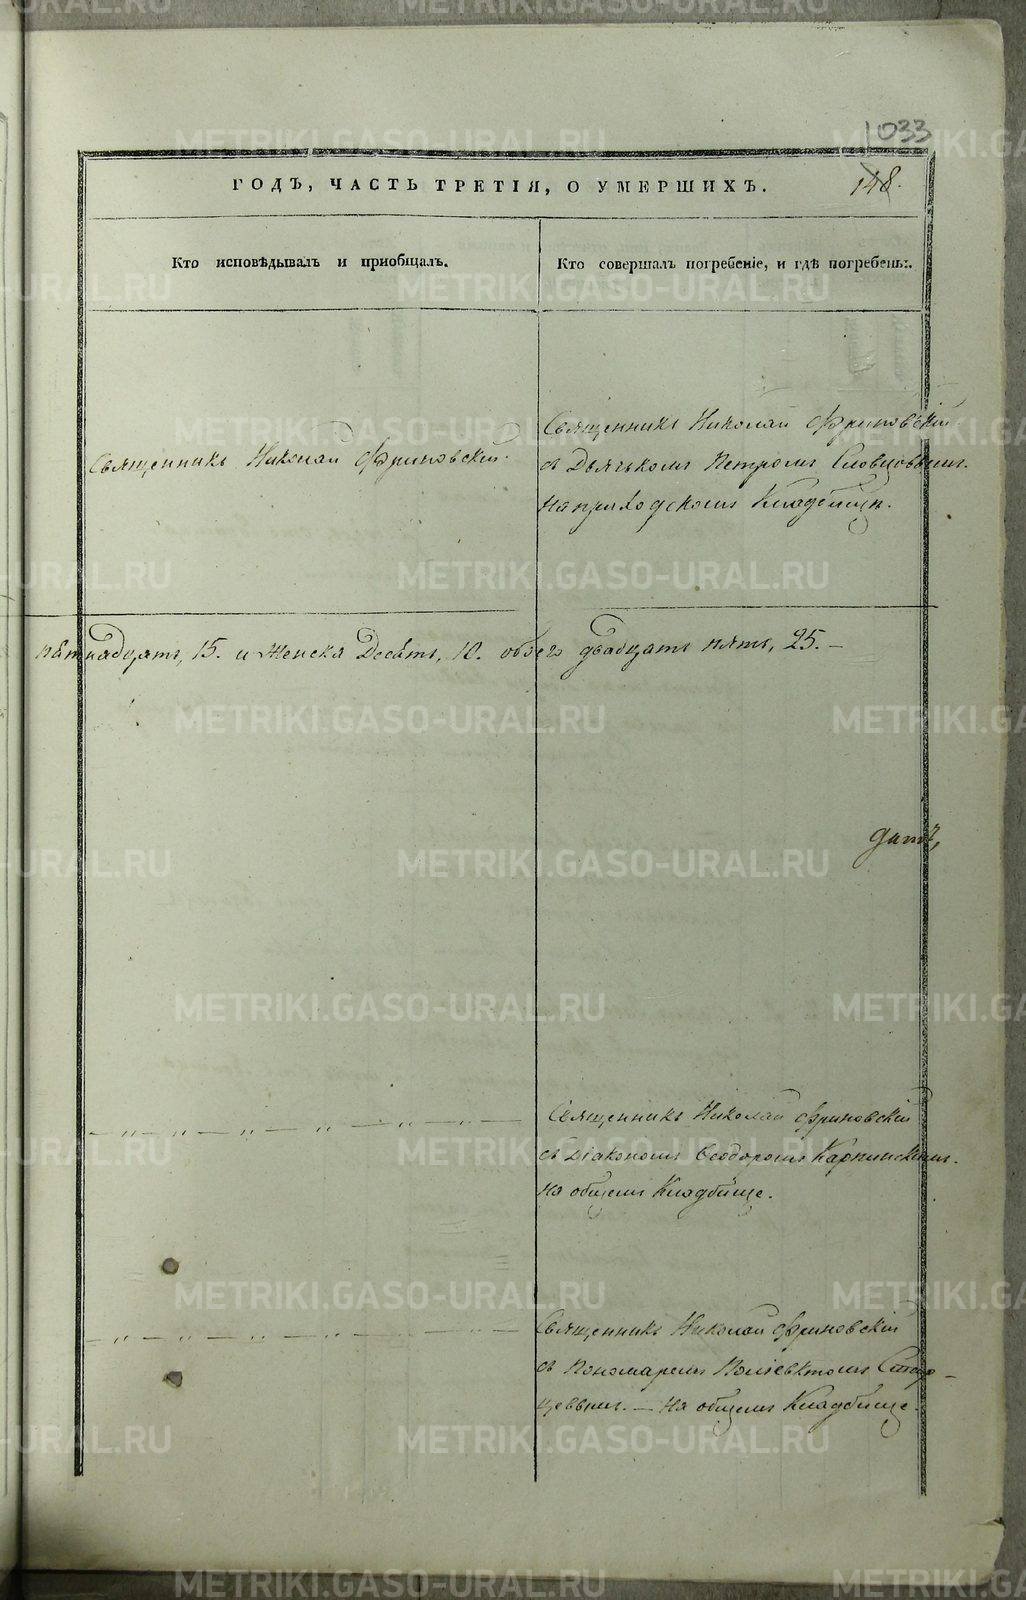 1033
ГОДЪ, ЧАСТЬ ТРЕТІЯ, О УМЕРШИХЪ.
148.
Кто исповѣдывалъ и пріобщалъ.
Кто совершалъ погребеніе, и гдѣ погребены.
Священникъ Николай Фриновскій.
Священникъ Николай Фриновскій
съ Дьячькомъ Петромъ Словцовымъ.
На приходскомъ Кладбищѣ.
пятнадцать, 15. и Женска Десять, 10. обоего двадцать пять, 25. —
Священникъ Николай Фриновскій
съ Діакономъ Ѳеодоромъ Карпинскимъ.
На общемъ Кладбище.
Священникъ Николай Фриновскій
съ Пономаремъ Поліевктомъ Стар-
цевымъ. — На общемъ Кладбище.
METRIKI.GASO-URAL.RU